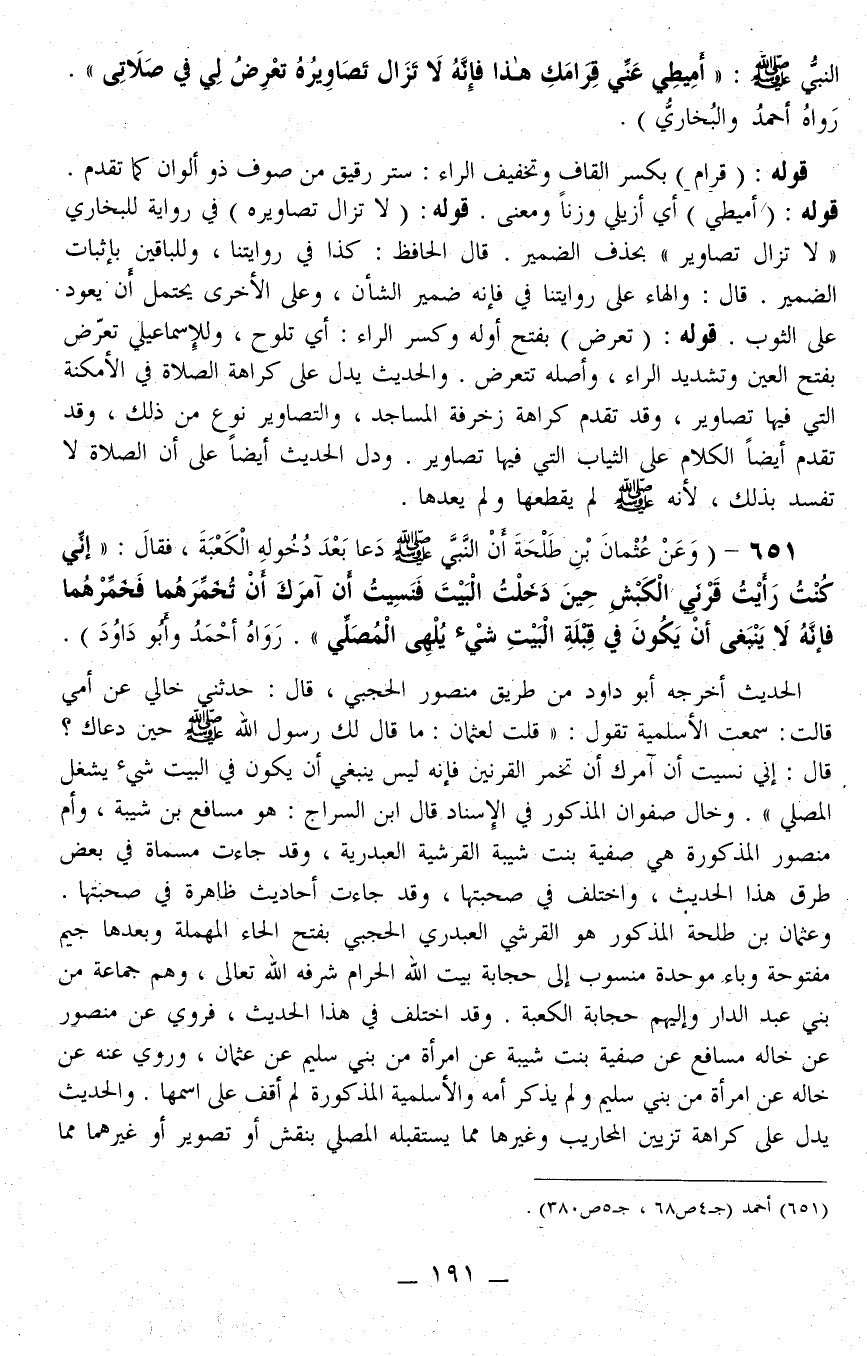 النبيُّ ﷺ : « أَمِيطِي عَنِّي قِرَامَكِ هٰذا فإنَّهُ لَا تَزَال تَصَاوِيرُهُ تعْرِضُ لِي في صَلَاتِى » .
رَوَاهُ أحمدُ والبُخاريُّ ) .
قوله : ( قرام ) بكسر القاف وتخفيف الراء : ستر رقيق من صوف ذو ألوان كما تقدم .
قوله : ( أميطي ) أي أزيلي وزناً ومعنى . قوله : ( لا تزال تصاويره ) في رواية للبخاري
« لا تزال تصاوير » بحذف الضمير . قال الحافظ : كذا في روايتنا ، وللباقين بإثبات
الضمير . قال : والهاء على روايتنا في فإنه ضمير الشأن ، وعلى الأخرى يحتمل أن يعود
على الثوب . قوله : ( تعرض ) بفتح أوله وكسر الراء : أي تلوح ، وللإسماعيلي تعرّض
بفتح العين وتشديد الراء ، وأصله تتعرض . والحديث يدل على كراهة الصلاة في الأمكنة
التي فيها تصاوير ، وقد تقدم كراهة زخرفة المساجد ، والتصاوير نوع من ذلك ، وقد
تقدم أيضاً الكلام على الثياب التي فيها تصاوير . ودل الحديث أيضاً على أن الصلاة لا
تفسد بذلك ، لأنه ﷺ لم يقطعها ولم يعدها .
٦٥١ - ( وَعَنْ عُثْمانَ بْنِ طَلْحَةَ أَنْ النَّبيَّ ﷺ دَعا بَعْدَ دُخُولهِ الْكَعْبَةَ ، فقالَ : « إنِّي
كُنْتُ رَأَيْتُ قَرْنَيِ الْكَبْشِ حِينَ دَخَلْتُ الْبَيْتَ فَنَسِيتُ أن آمرَكَ أَنْ تُخَمِّرَهُما فَخَمِّرْهُما
فإنَّهُ لَا يَنْبَغى أنْ يَكُونَ في قِبْلَةِ الْبَيْتِ شيْء يُلْهِى الْمُصَلِّي » . رَوَاهُ أحْمَدُ وأَبُو دَاوُدَ ) .
الحديث أخرجه أبو داود من طريق منصور الحجبي ، قال : حدثني خالي عن أمي
قالت : سمعت الأسلمية تقول : « قلت لعثمان : ما قال لك رسول الله ﷺ حين دعاك ؟
قال : إني نسيت أن آمرك أن تخمر القرنين فإنه ليس ينبغي أن يكون في البيت شيء يشغل
المصلي » . وخال صفوان المذكور في الإسناد قال ابن السراج : هو مسافع بن شيبة ، وأم
منصور المذكورة هي صفية بنت شيبة القرشية العبدرية ، وقد جاءت مسماة في بعض
طرق هذا الحديث ، واختلف في صحبتها ، وقد جاءت أحاديث ظاهرة في صحبتها .
وعثمان بن طلحة المذكور هو القرشي العبدري الحجبي بفتح الحاء المهملة وبعدها جيم
مفتوحة وباء موحدة منسوب إلى حجابة بيت الله الحرام شرفه الله تعالى ، وهم جماعة من
بني عبد الدار وإليهم حجابة الكعبة . وقد اختلف في هذا الحديث ، فروي عن منصور
عن خاله مسافع عن صفية بنت شيبة عن امرأة من بني سليم عن عثمان ، وروي عنه عن
خاله عن امرأة من بني سليم ولم يذكر أمه والأسلمية المذكورة لم أقف على اسمها . والحديث
يدل على كراهة تزيين المحاريب وغيرها مما يستقبله المصلي بنقش أو تصوير أو غيرهما مما
(٦٥١) أحمد (جـ٤ص٦٨ ، جـ٥ص٣٨٠) .
— ١٩١ —